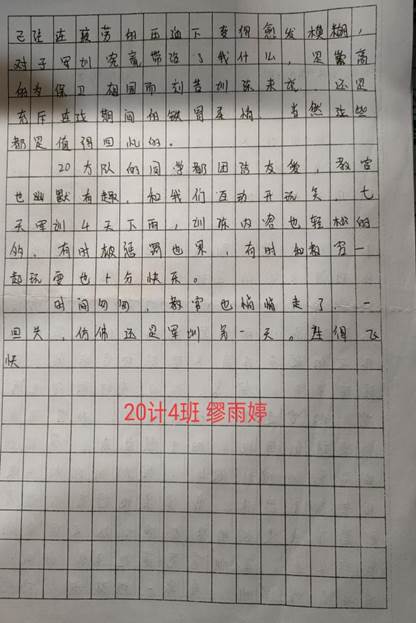 已经在疲劳的压迫下变得愈发模糊，
对于军训究竟带给了我什么，是崇高
的为保卫祖国而刻苦训练来说，还是
充斥连战期间的铁骨柔情。当然这些
都是值得回忆的。
20方队的同学都团结友爱，教官
也幽默有趣，和我们互动开玩笑。七
天军训4天下雨，训练内容也轻松的
的，有时被惩罚也累，有时和教官一
起玩耍也十分快乐。
时间匆匆，教官也悄悄走了，一
回头，仿佛还是军训第一天。过得飞
快
20计4班 缪雨婷